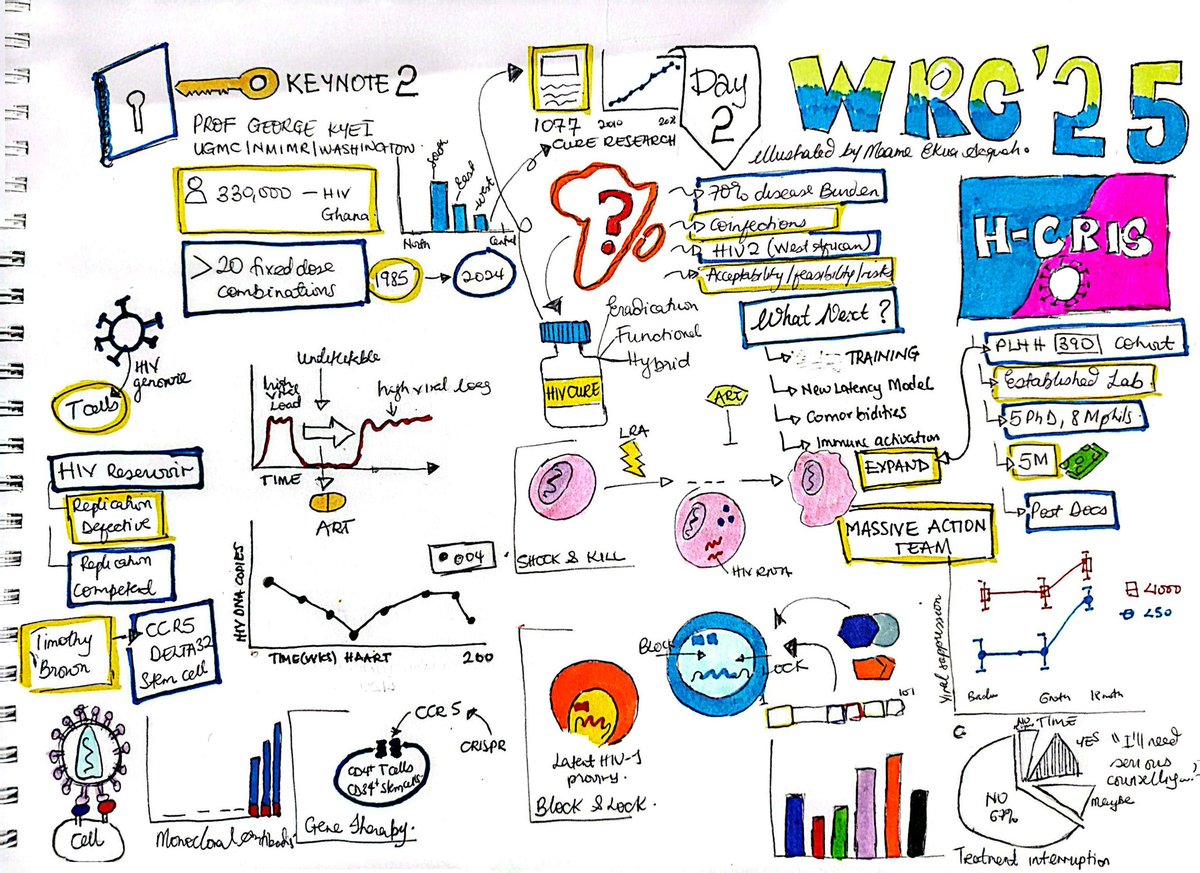 KEYNOTE 2
PROF GEORGE KYEI
UGMC/NMIMR/WASHINGTON
339,000 – HIV
Ghana
>20 fixed dose
combinations
1985
2024
South
East
West
North
Central
1077
2010
CURE RESEARCH
Day
2
WRC'25
illustrated by Maame Ekua
70% disease Burden
Coinfections
HIV2 (West African)
Acceptability/feasibility/risks
What Next?
TRAINING
New Latency Model
Comorbidities
Immune activation
EXPAND
MASSIVE ACTION
TEAM
H-CRIS
PLHH 390 Cohort
Established Lab
5 PhD, 8 Mphils
5M
Post Docs
Eradication
Functional
Hybrid
HIV CURE
HIV
genome
T cells
HIV Reservoir
Replication
Defective
Replication
Competent
Timothy
Brown
CCR5
DELTA32
Stem cell
high
viral
Load
high viral load
TIME
ART
HIV DNA COPIES
004
TIME(WKS) HAART
200
LRA
ART
HIV RNA
SHOCK & KILL
Latent HIV-1
BLOCK & LOCK.
BLOCK
LOCK
Cell
Monoclonal
CCR5
CRISPR
CD4+ T cells
CD34+ Stem cells
Gene Therapy.
Viral suppression
<1000
<50
TIME
YES
"I'll need
serious
Maybe
NO
67%
Treatment interruption